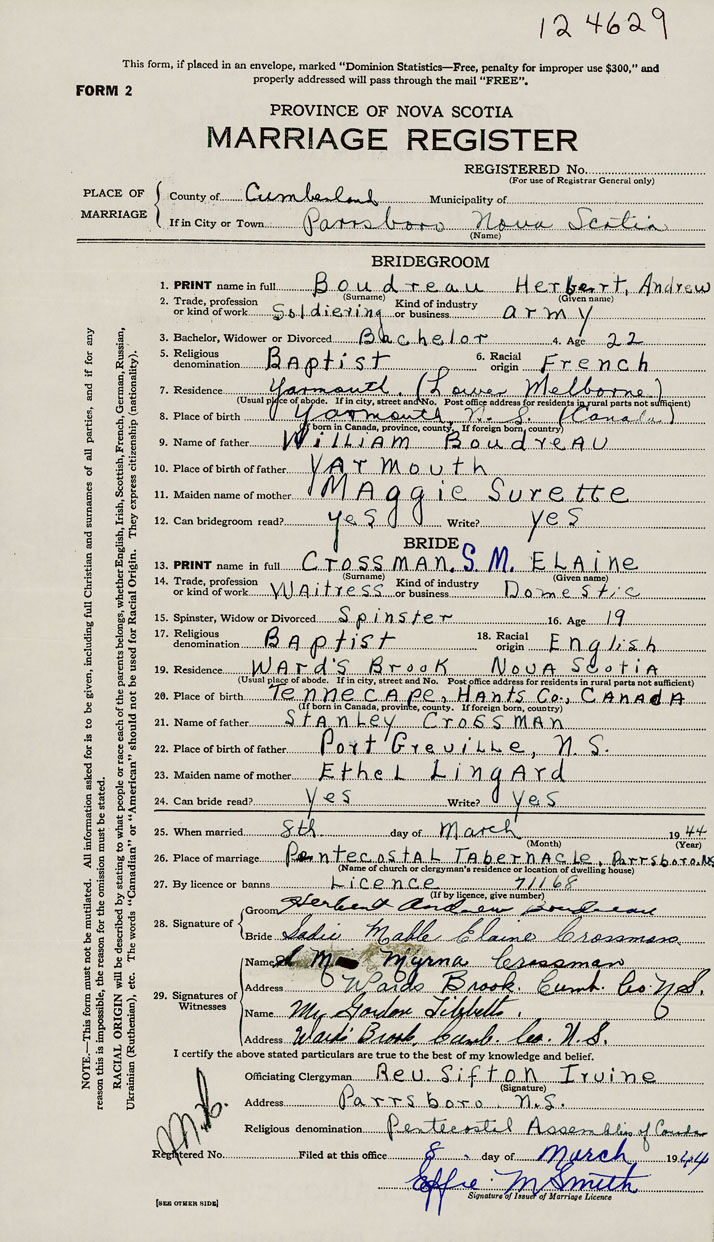 124629
This form, if placed in an envelope, marked "Dominion Statistics—Free, penalty for improper use $300," and
properly addressed will pass through the mail "FREE".
FORM 2
PROVINCE OF NOVA SCOTIA
MARRIAGE REGISTER
REGISTERED No.
(For use of Registrar General only)
PLACE OF MARRIAGE
County of Cumberland Municipality of
If in City or Town Parrsboro Nova Scotia
(Name)
BRIDEGROOM
1. PRINT name in full Boudreau Herbert, Andrew
(Surname) (Given name)
2. Trade, profession or kind of work Soldiering Kind of industry or business army
3. Bachelor, Widower or Divorced Bachelor 4. Age 22
5. Religious denomination BAptist 6. Racial origin French
7. Residence Yarmouth. (Lower Melborne)
(Usual place of abode. If in city, street and No. Post office address for residents in rural parts not sufficient)
8. Place of birth Yarmouth, N.S. (Canada)
(If born in Canada, province, county. If foreign born, country)
9. Name of father WILLIAM BoudreAU
10. Place of birth of father YArmouth
11. Maiden name of mother MAggie Surette
12. Can bridegroom read? yes Write? yes
BRIDE
13. PRINT name in full CrossMAN. S.M. ELAine
(Surname) (Given name)
14. Trade, profession or kind of work WAitress Kind of industry or business Domestic
15. Spinster, Widow or Divorced Spinster 16. Age 19
17. Religious denomination BAptist 18. Racial origin English
19. Residence WArd's Brook Nova Scotia
(Usual place of abode. If in city, street and No. Post office address for residents in rural parts not sufficient)
20. Place of birth TenneCApe, Hants Co., CANADA
(If born in Canada, province, county. If foreign born, country)
21. Name of father StANLey CrossMAN
22. Place of birth of father Port Greville, N.S.
23. Maiden name of mother EtheL LingArd
24. Can bride read? Yes Write? Yes
25. When married 8th day of March 1944
(Month) (Year)
26. Place of marriage PentecostAL TAberNAcle, Parrsboro, NS
(Name of church or clergyman's residence or location of dwelling house)
27. By licence or banns Licence 71168
(If by licence, give number)
28. Signature of
Groom Herbert Andrew Boudreau
Bride Sadie Mable Elaine Crossman.
29. Signatures of Witnesses
Name Myrna Crossman
Address Wards Brook. Cumb. Co. N.S.
Name Mr Gordon Tibbetts.
Address Ward's Brook, Cumb. Co. N.S.
I certify the above stated particulars are true to the best of my knowledge and belief.
Officiating Clergyman Rev. Sifton Irvine
(Signature)
Address Parrsboro, N.S.
Religious denomination Pentecostal Assemblies of Canada
Registered No. Filed at this office 8 day of March 1944
Effie M Smith
Signature of Issuer of Marriage Licence
[SEE OTHER SIDE]
NOTE.—This form must not be mutilated. All information asked for is to be given, including full Christian and surnames of all parties, and if for any
reason this is impossible, the reason for the omission must be stated.
RACIAL ORIGIN will be described by stating to what people or race each of the parents belongs, whether English, Irish, Scottish, French, German, Russian,
Ukrainian (Ruthenian), etc. The words "Canadian" or "American" should not be used for Racial Origin. They express citizenship (nationality).